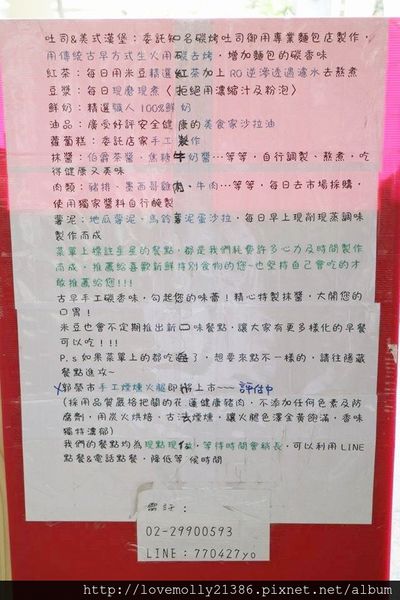 吐司&美式漢堡：委託知名碳烤吐司御用專業麵包店製作，
用傳統古早方式生火用碳去烤，增加麵包的碳香味
紅茶：每日用米豆精選紅茶加上RO逆滲透過濾水去熬煮
豆漿：每日現磨現煮〈拒絕用濃縮汁及粉泡〉
鮮奶：精選職人100%鮮奶
油品：廣受好評安全健康的美食家沙拉油
蘿蔔糕：委託店家手工製作
抹醬：伯爵茶醬、焦糖牛奶醬…等等，自行調製、熬煮，吃
得健康又美味
肉類：豬排、墨西哥雞肉、牛肉…等等，每日去市場採購，
使用獨家醬料自行醃製
薯泥：地瓜薯泥、馬鈴薯泥蛋沙拉，每日早上現削現蒸調味
製作而成
菜單上標註星星的餐點，都是我們耗費許多心力及時間製作
而成，推薦給喜歡新鮮特別食物的您~也堅持自己會吃的才
敢推薦給您!!!
古早手工碳香味，勾起您的味蕾！精心特製抹醬，大開您的
口胃！
米豆也會不定期推出新口味餐點，讓大家有更多樣化的早餐
可以吃!!!
P.s如果菜單上的都吃過了，想要來點不一樣的，請往隱藏
餐點進攻~
郭榮市手工煙燻火腿即將上市~~~ 評估中
(採用品質嚴格把關的花蓮健康豬肉，不添加任何色素及防
腐劑，用炭火烘焙，古法煙燻，讓火腿色澤金黃飽滿，香味
獨特濃郁)
我們的餐點均為現點現做，等待時間會稍長，可以利用LINE
點餐&電話點餐，降低等候時間
02-29900593
LINE：770427yo
http://lovemolly21386.pixnet.net/album